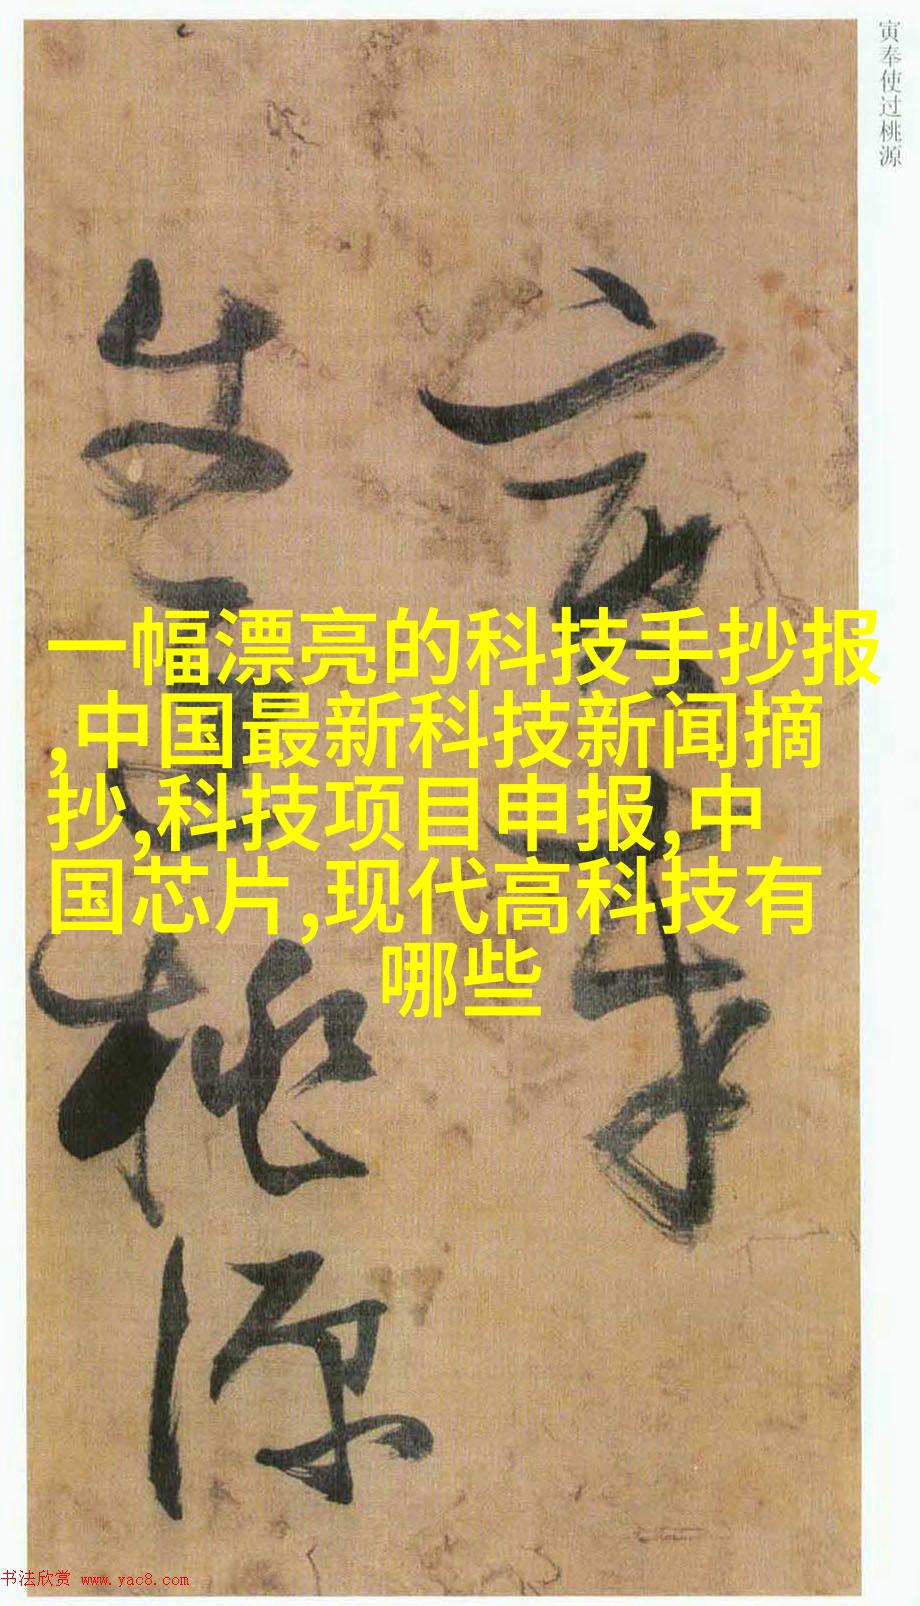 寅奉使过桃源
一幅漂亮的科技手抄报
,中国最新科技新闻摘
抄,科技项目申报,中
国芯片,现代高科技有
哪些
寅奉
使过桃源
书法欣赏 www.yac8.com